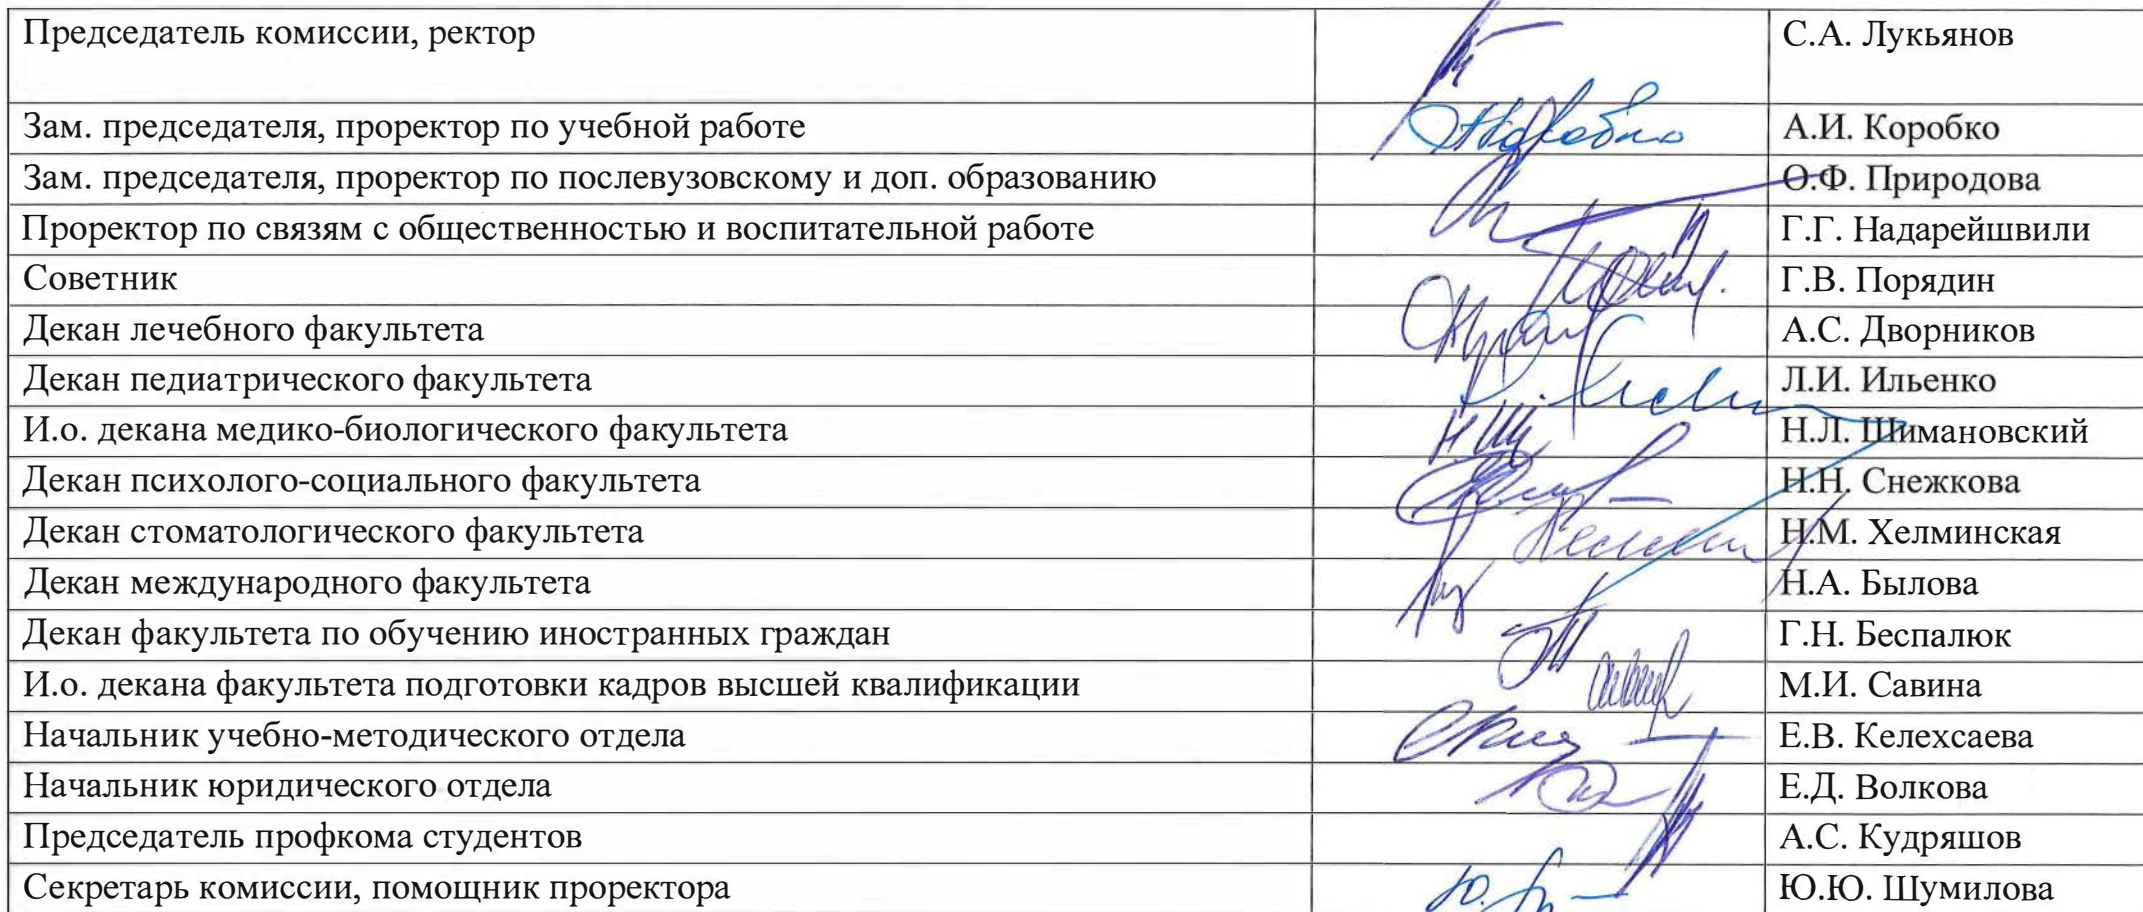 Председатель комиссии, ректор С.А. Лукьянов
Зам. председателя, проректор по учебной работе Коробко А.И. Коробко
Зам. председателя, проректор по послевузовскому и доп. образованию О.Ф. Природова
Проректор по связям с общественностью и воспитательной работе Г.Г. Надарейшвили
Советник Г.В. Порядин
Декан лечебного факультета А.С. Дворников
Декан педиатрического факультета Л.И. Ильенко
И.о. декана медико-биологического факультета Н.Л. Шимановский
Декан психолого-социального факультета Н.Н. Снежкова
Декан стоматологического факультета Н.М. Хелминская
Декан международного факультета Н.А. Былова
Декан факультета по обучению иностранных граждан Г.Н. Беспалюк
И.о. декана факультета подготовки кадров высшей квалификации М.И. Савина
Начальник учебно-методического отдела Е.В. Келехсаева
Начальник юридического отдела Е.Д. Волкова
Председатель профкома студентов А.С. Кудряшов
Секретарь комиссии, помощник проректора Ю.Ю. Шумилова